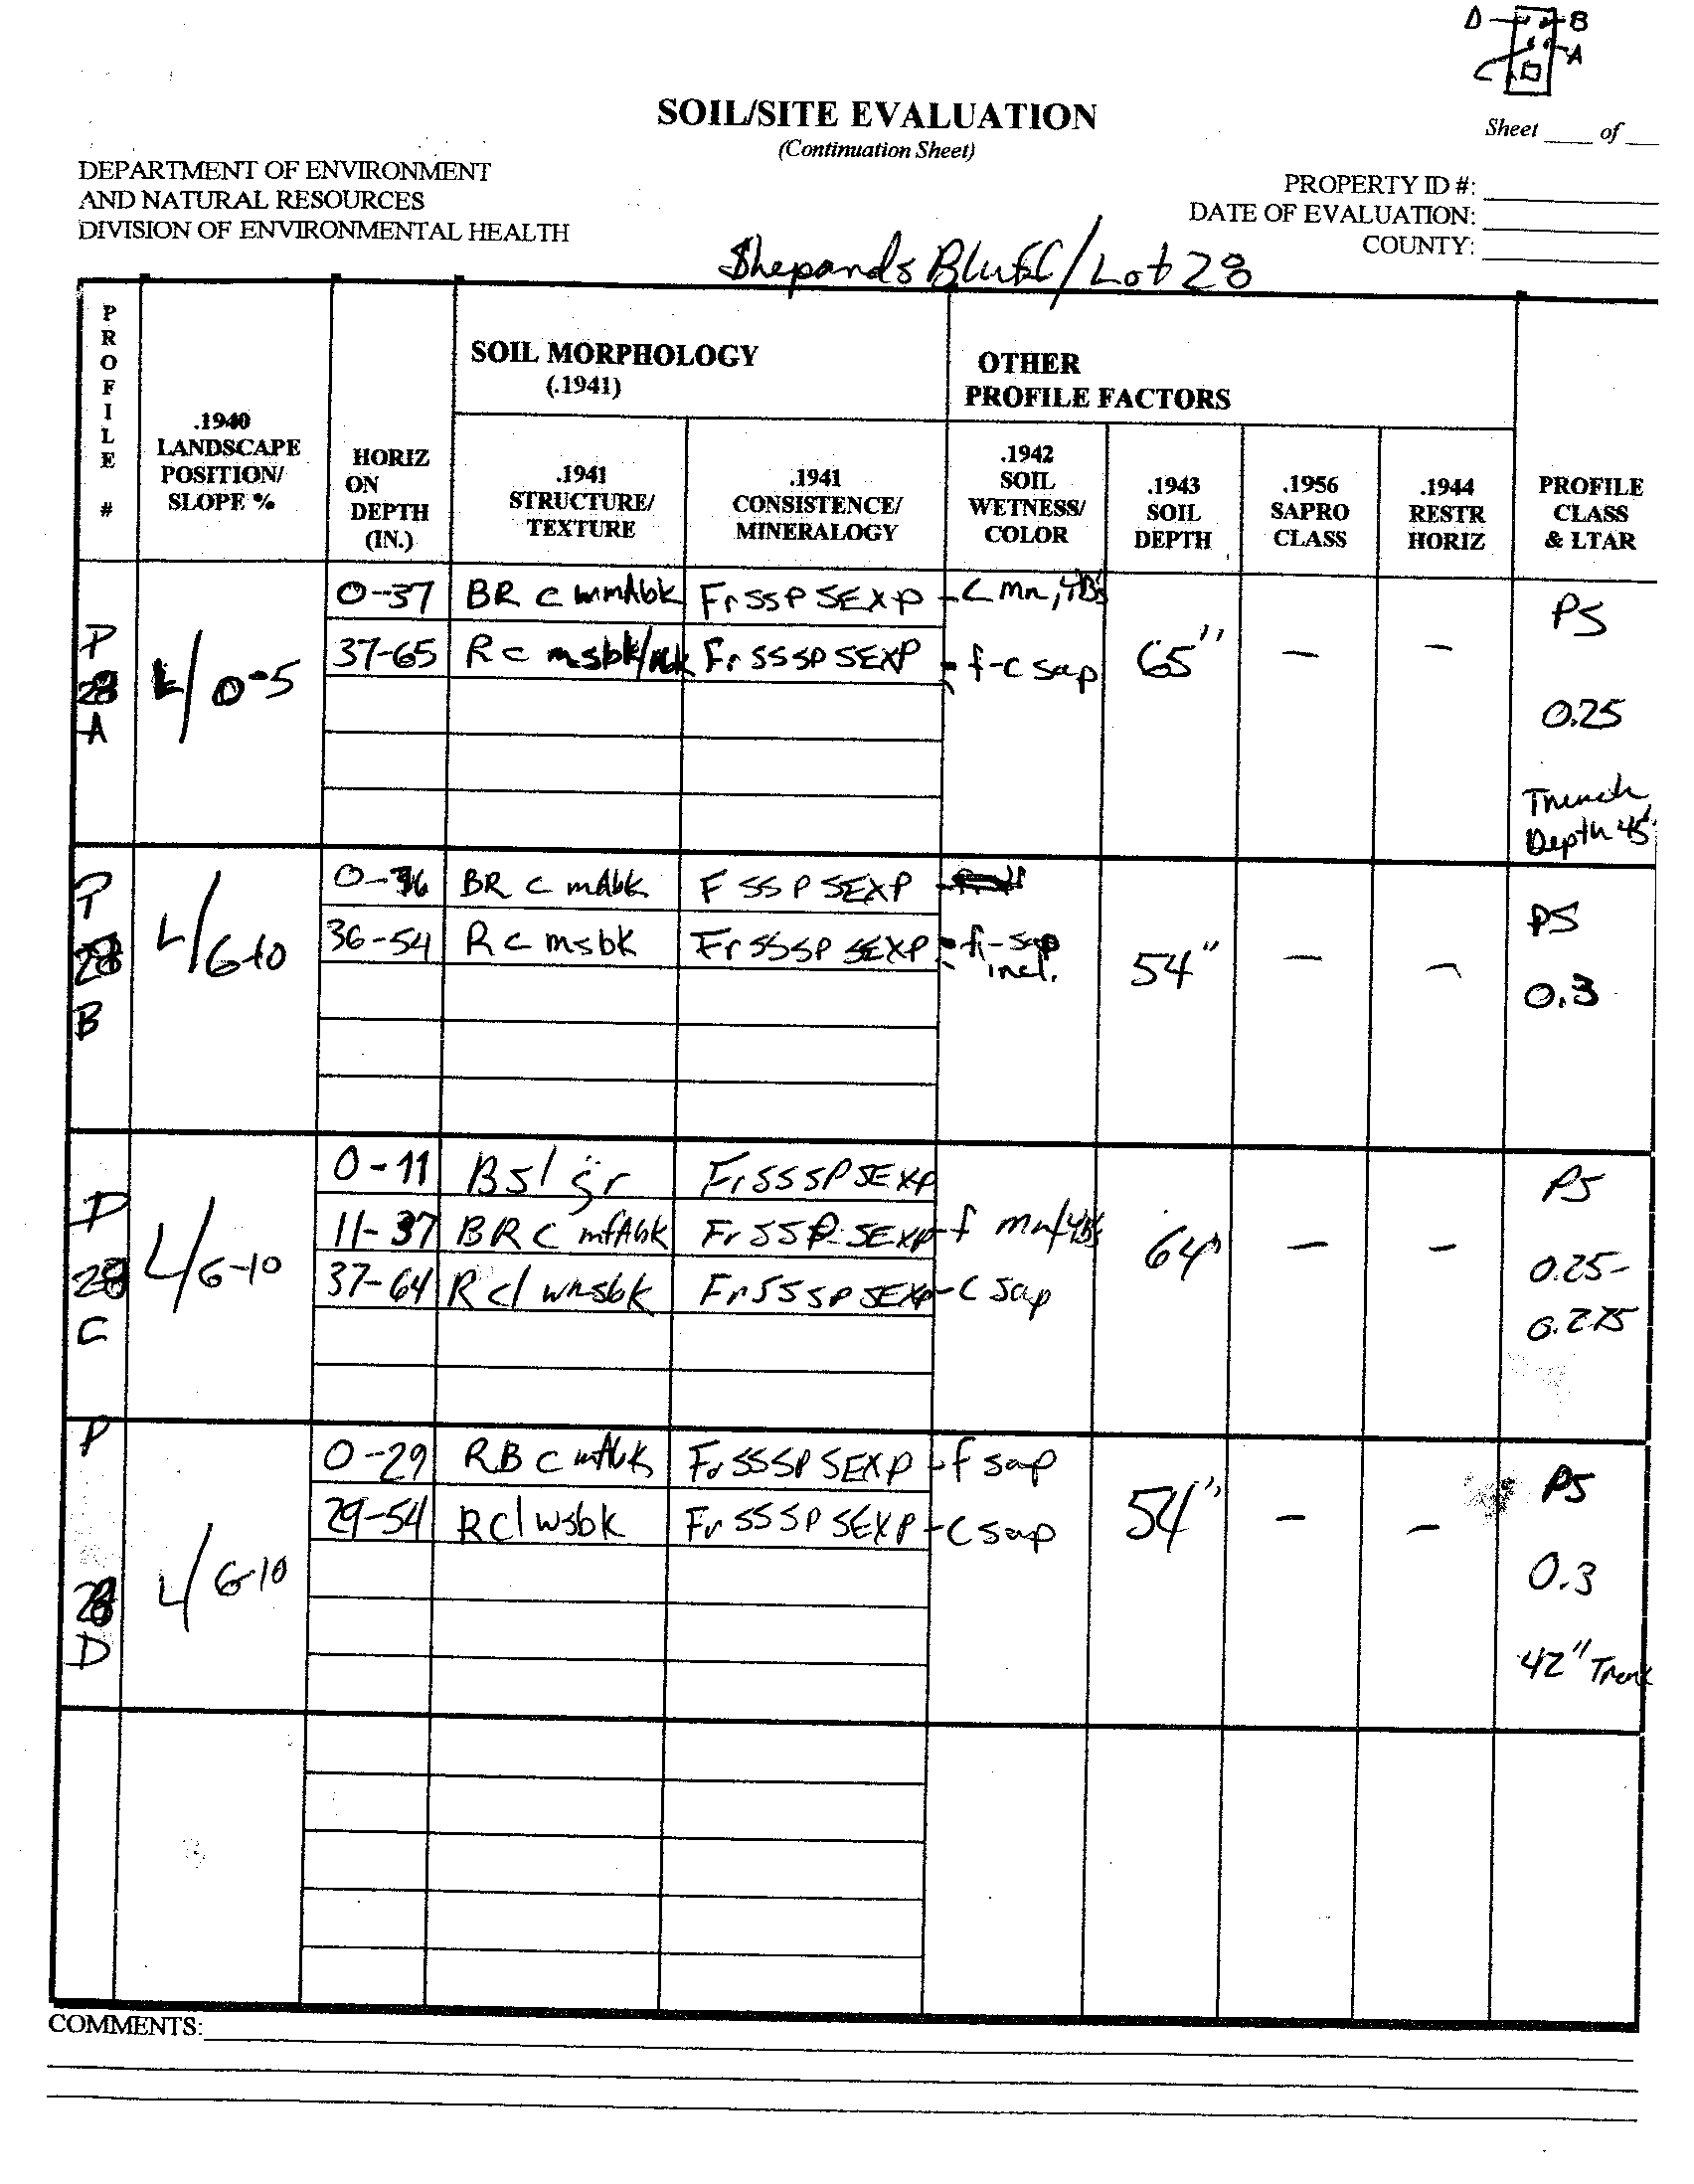 D B
A
C
SOIL/SITE EVALUATION
(Continuation Sheet)
Sheet ____ of __
DEPARTMENT OF ENVIRONMENT
AND NATURAL RESOURCES
DIVISION OF ENVIRONMENTAL HEALTH
PROPERTY ID #:
DATE OF EVALUATION:
COUNTY:
Shepards Bluff/Lot 28
PROFILE #
.1940 LANDSCAPE POSITION/ SLOPE %
HORIZ ON DEPTH (IN.)
SOIL MORPHOLOGY (.1941)
.1941 STRUCTURE/ TEXTURE
.1941 CONSISTENCE/ MINERALOGY
OTHER PROFILE FACTORS
.1942 SOIL WETNESS/ COLOR
.1943 SOIL DEPTH
.1956 SAPRO CLASS
.1944 RESTR HORIZ
PROFILE CLASS & LTAR
P 28 A
L/0-5
0-37 BR c mAbk Fr SS P SEXP - c mn, YB's
37-65 R c msbk/Abk Fr SS SP SEXP - f-c sap
65" — —
PS
0.25
Trench
Depth 45"
P 28 B
L/6-10
0-36 BR c mAbk F SS P SEXP
36-54 R c msbk Fr SS SP SEXP - f-sap incl.
54" — —
PS
0.3
P 28 C
L/6-10
0-11 B sl gr Fr SS SP SEXP
11-37 BR C mfAbk Fr SS P SEXP - f mn/YB's
37-64 R cl wmsbk Fr SS SP SEXP - C sap
64" — —
PS
0.25-
0.275
P 28 D
L/6-10
0-29 RB c mfAbk Fr SS SP SEXP - f sap
29-54 R cl wsbk Fr SS SP SEXP - C sap
54" — —
PS
0.3
42" Trenc
COMMENTS: